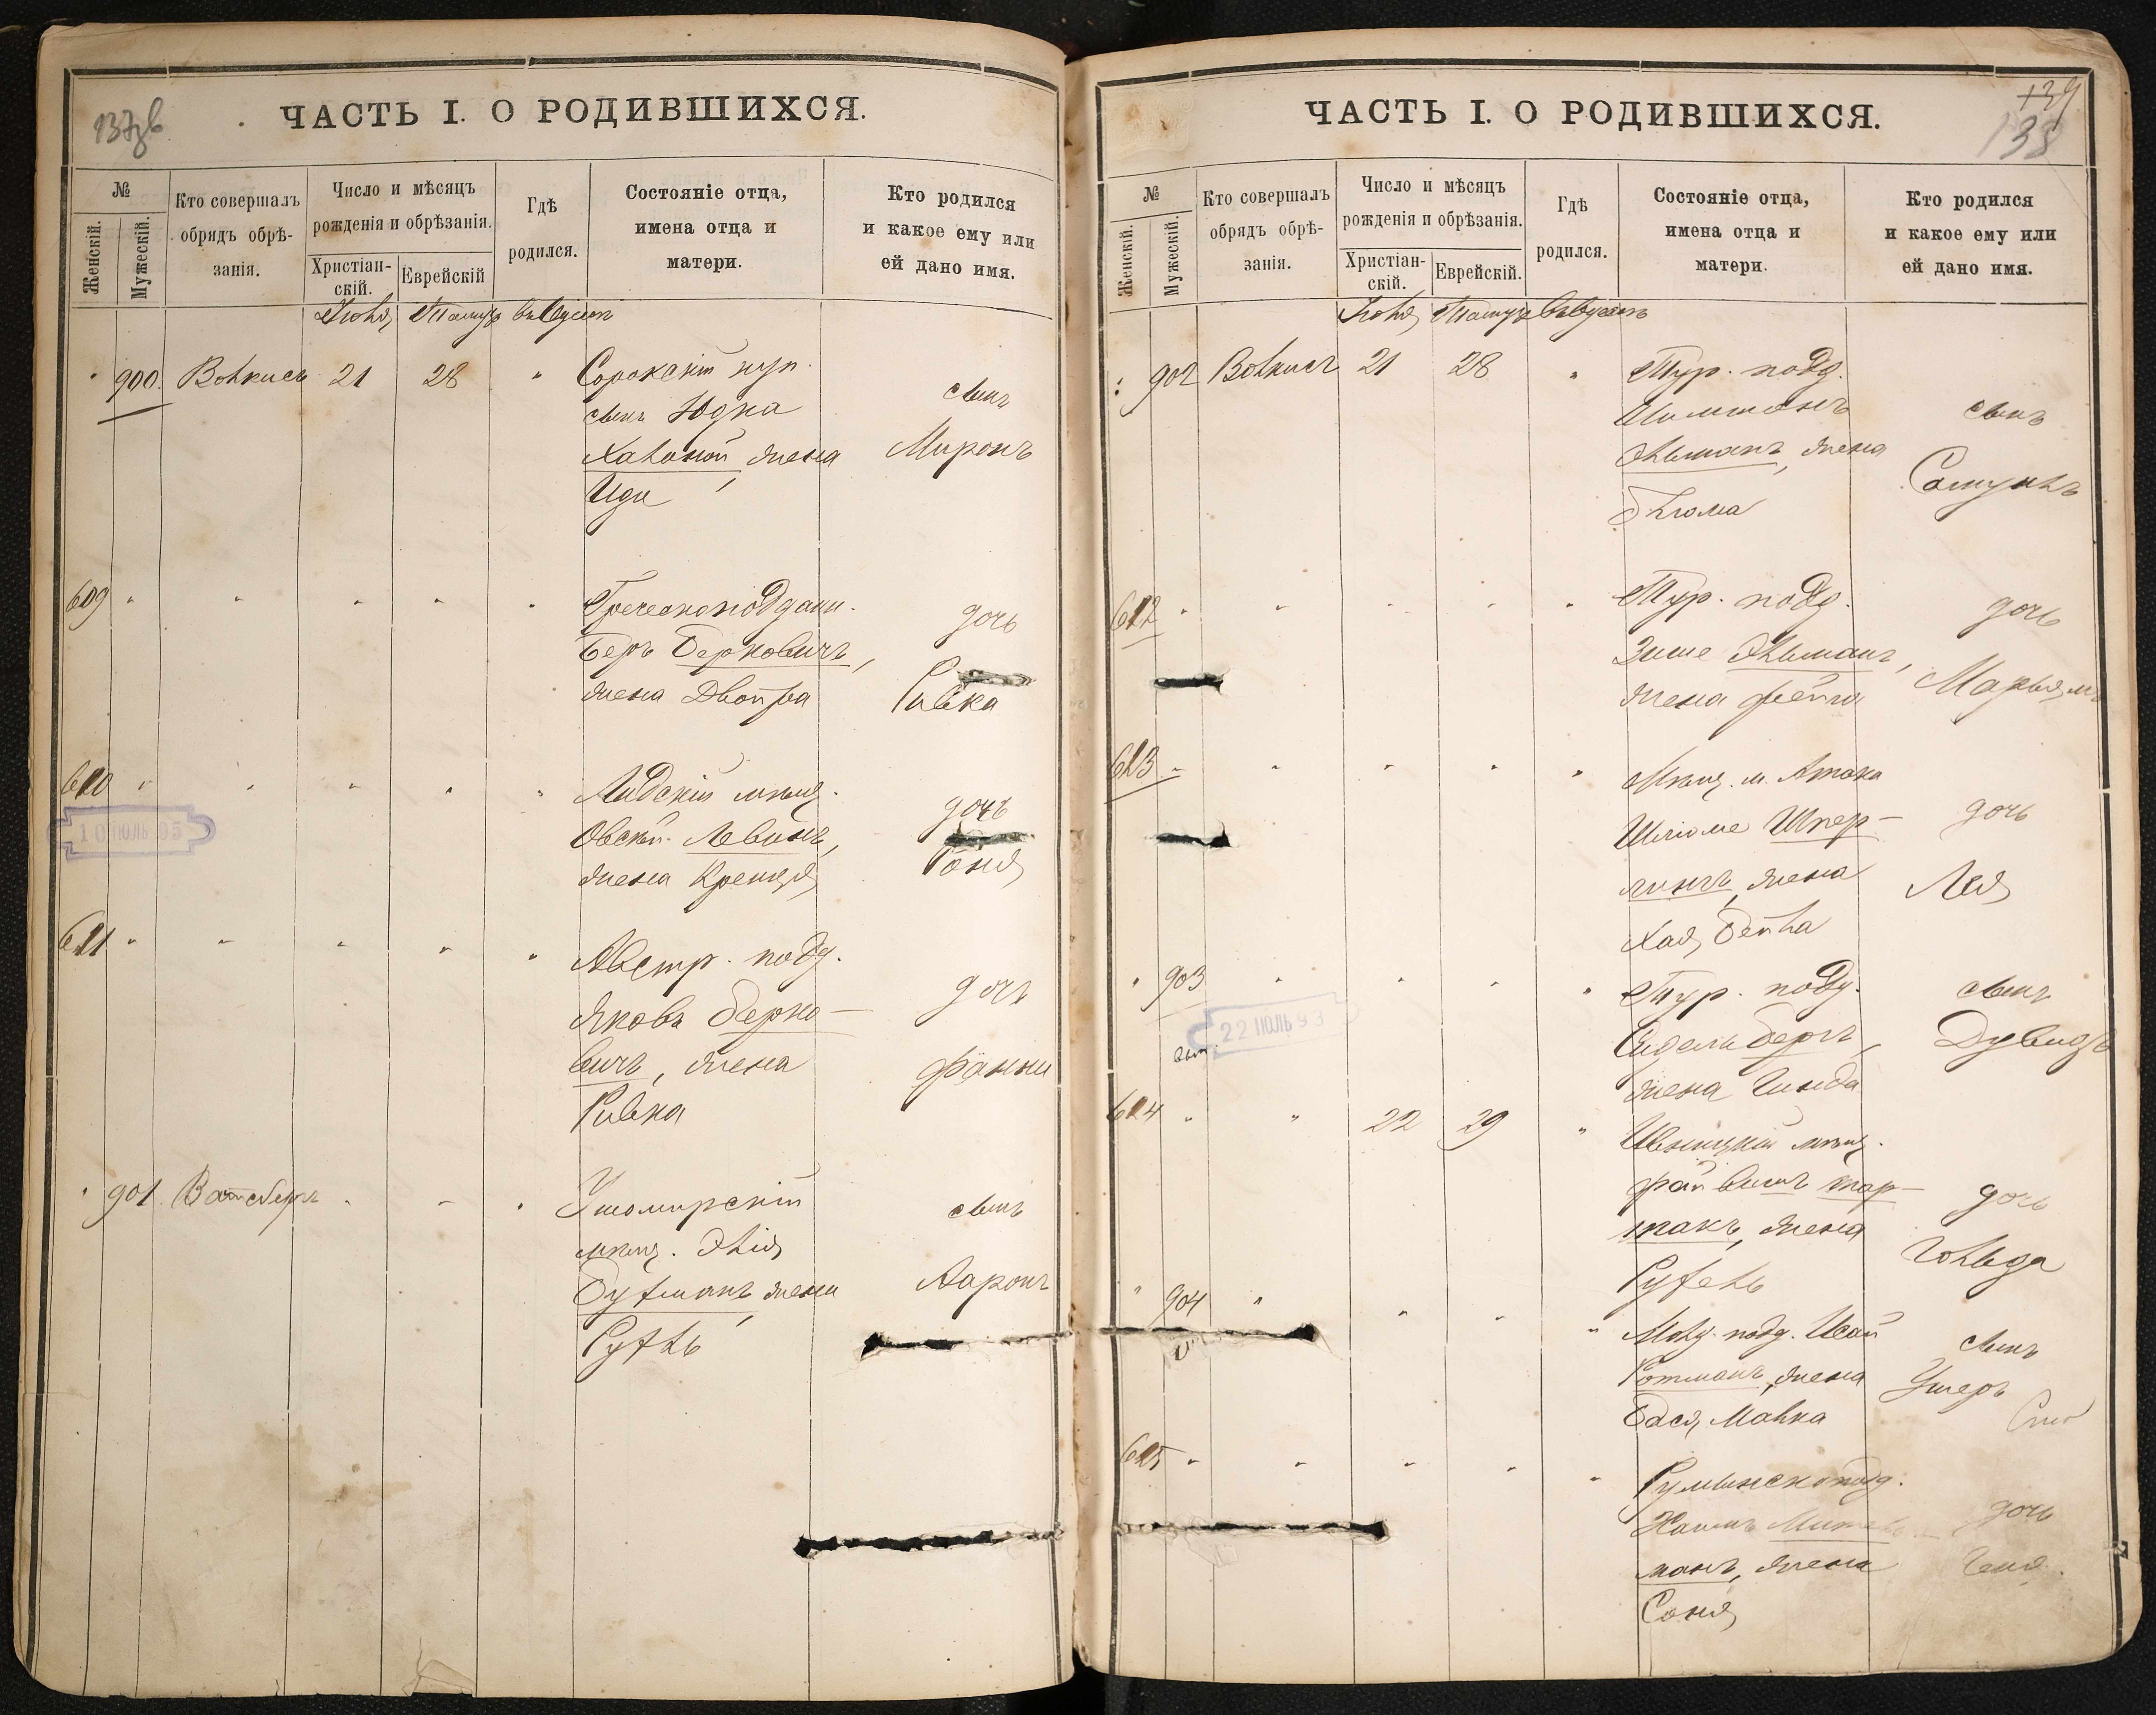 137об
ЧАСТЬ I. О РОДИВШИХСЯ.
№
Женскій.
Мужескій.
Кто совершалъ
обрядъ обрѣ-
занія.
Число и мѣсяцъ
рожденія и обрѣзанія.
Христіан-
скій.
Еврейскій
Гдѣ
родился.
Состояніе отца,
имена отца и
матери.
Кто родился
и какое ему или
ей дано имя.
Іюля Тамузъ
900. 21 28 " Сорокскій куп.
сынъ Юдка
жена
Ида
сынъ
Миронъ
609 " " " " " Греческоподдан.
Беръ Берковичъ,
жена Двойра
дочь
Ривка
610 " " " " " Лидскій мѣщ.
Овсей Левинъ,
жена Крейндя
дочь
Соня
10 ІЮЛЬ 95
611 " " " " " Австр. подд.
Яковъ Берко-
вичъ, жена
Ривка
дочь
Фанни
" 901 " " "
мѣщ. Эліа
Гутманъ жена
сынъ
Ааронъ
139
138
ЧАСТЬ I. О РОДИВШИХСЯ.
№
Женскій.
Мужескій.
Кто совершалъ
обрядъ обрѣ-
занія.
Число и мѣсяцъ
рожденія и обрѣзанія.
Христіан-
скій.
Еврейскій.
Гдѣ
родился.
Состояніе отца,
имена отца и
матери.
Кто родился
и какое ему или
ей дано имя.
Іюля Тамузъ
902 21 28 " Тур. подд.
Эльманъ, жена
Блюма
сынъ
Самуилъ
612 " " " " " Тур. подд.
Зисе Эльманъ,
жена Фейга
дочь
Марьямъ
613 " " " " " Мѣщ. м. Атака
Шлиоме Шпер-
лингъ, жена
Хая Бейла
дочь
Лея
" 903 " " " " Тур. подд.
Айдель Бергъ,
жена Гинда
сынъ
Дувидъ
22 ІЮЛЬ 93
614 " " 22 29 " мѣщ.
Файвишъ
жена
Рухель
дочь
Гольда
" 904 " " " " подд. Исай
Ротманъ, жена
Бася Малка
сынъ
Ушеръ
615 " " " " " Румынскоподд.
манъ, жена
Соня
дочь
Геня.